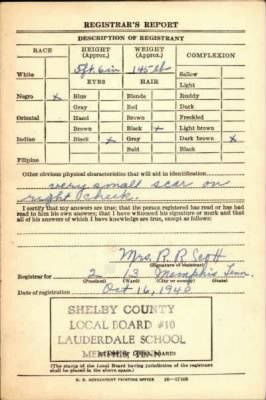 REGISTRAR'S REPORT
DESCRIPTION OF REGISTRANT
RACE HEIGHT (Approx.) WEIGHT (Approx.) COMPLEXION
5ft. 6in 145 lb
White EYES HAIR Sallow
Light
Negro x Blue Blonde Ruddy
Gray Red Dark
Oriental Hazel Brown Freckled
Brown Black x Light brown
Indian Black x Gray Dark brown x
Bald Black
Filipino
Other obvious physical characteristics that will aid in identification
very small scar on
right cheek.
I certify that my answers are true; that the person registered has read or has had
read to him his own answers; that I have witnessed his signature or mark and that
all of his answers of which I have knowledge are true, except as follows:
Mrs. R. R. Scott
(Signature of registrar)
Registrar for 2 13 Memphis, Tenn.
(Precinct) (Ward) (City or county) (State)
Date of registration Oct 16, 1940
SHELBY COUNTY
LOCAL BOARD #10
LAUDERDALE SCHOOL
MEMPHIS, TENN.
(The stamp of the Local Board having jurisdiction of the registrant
shall be placed in the above space.)
U. S. GOVERNMENT PRINTING OFFICE 16—17105